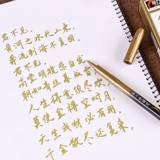 君不见,
黄河之水天上来,
奔流到海不复回。
君不见,
高堂明镜悲白发,
朝如青丝暮成雪。
人生得意须尽欢,
莫使金樽空对月。
天生我材必有用,
千金散尽还复来。